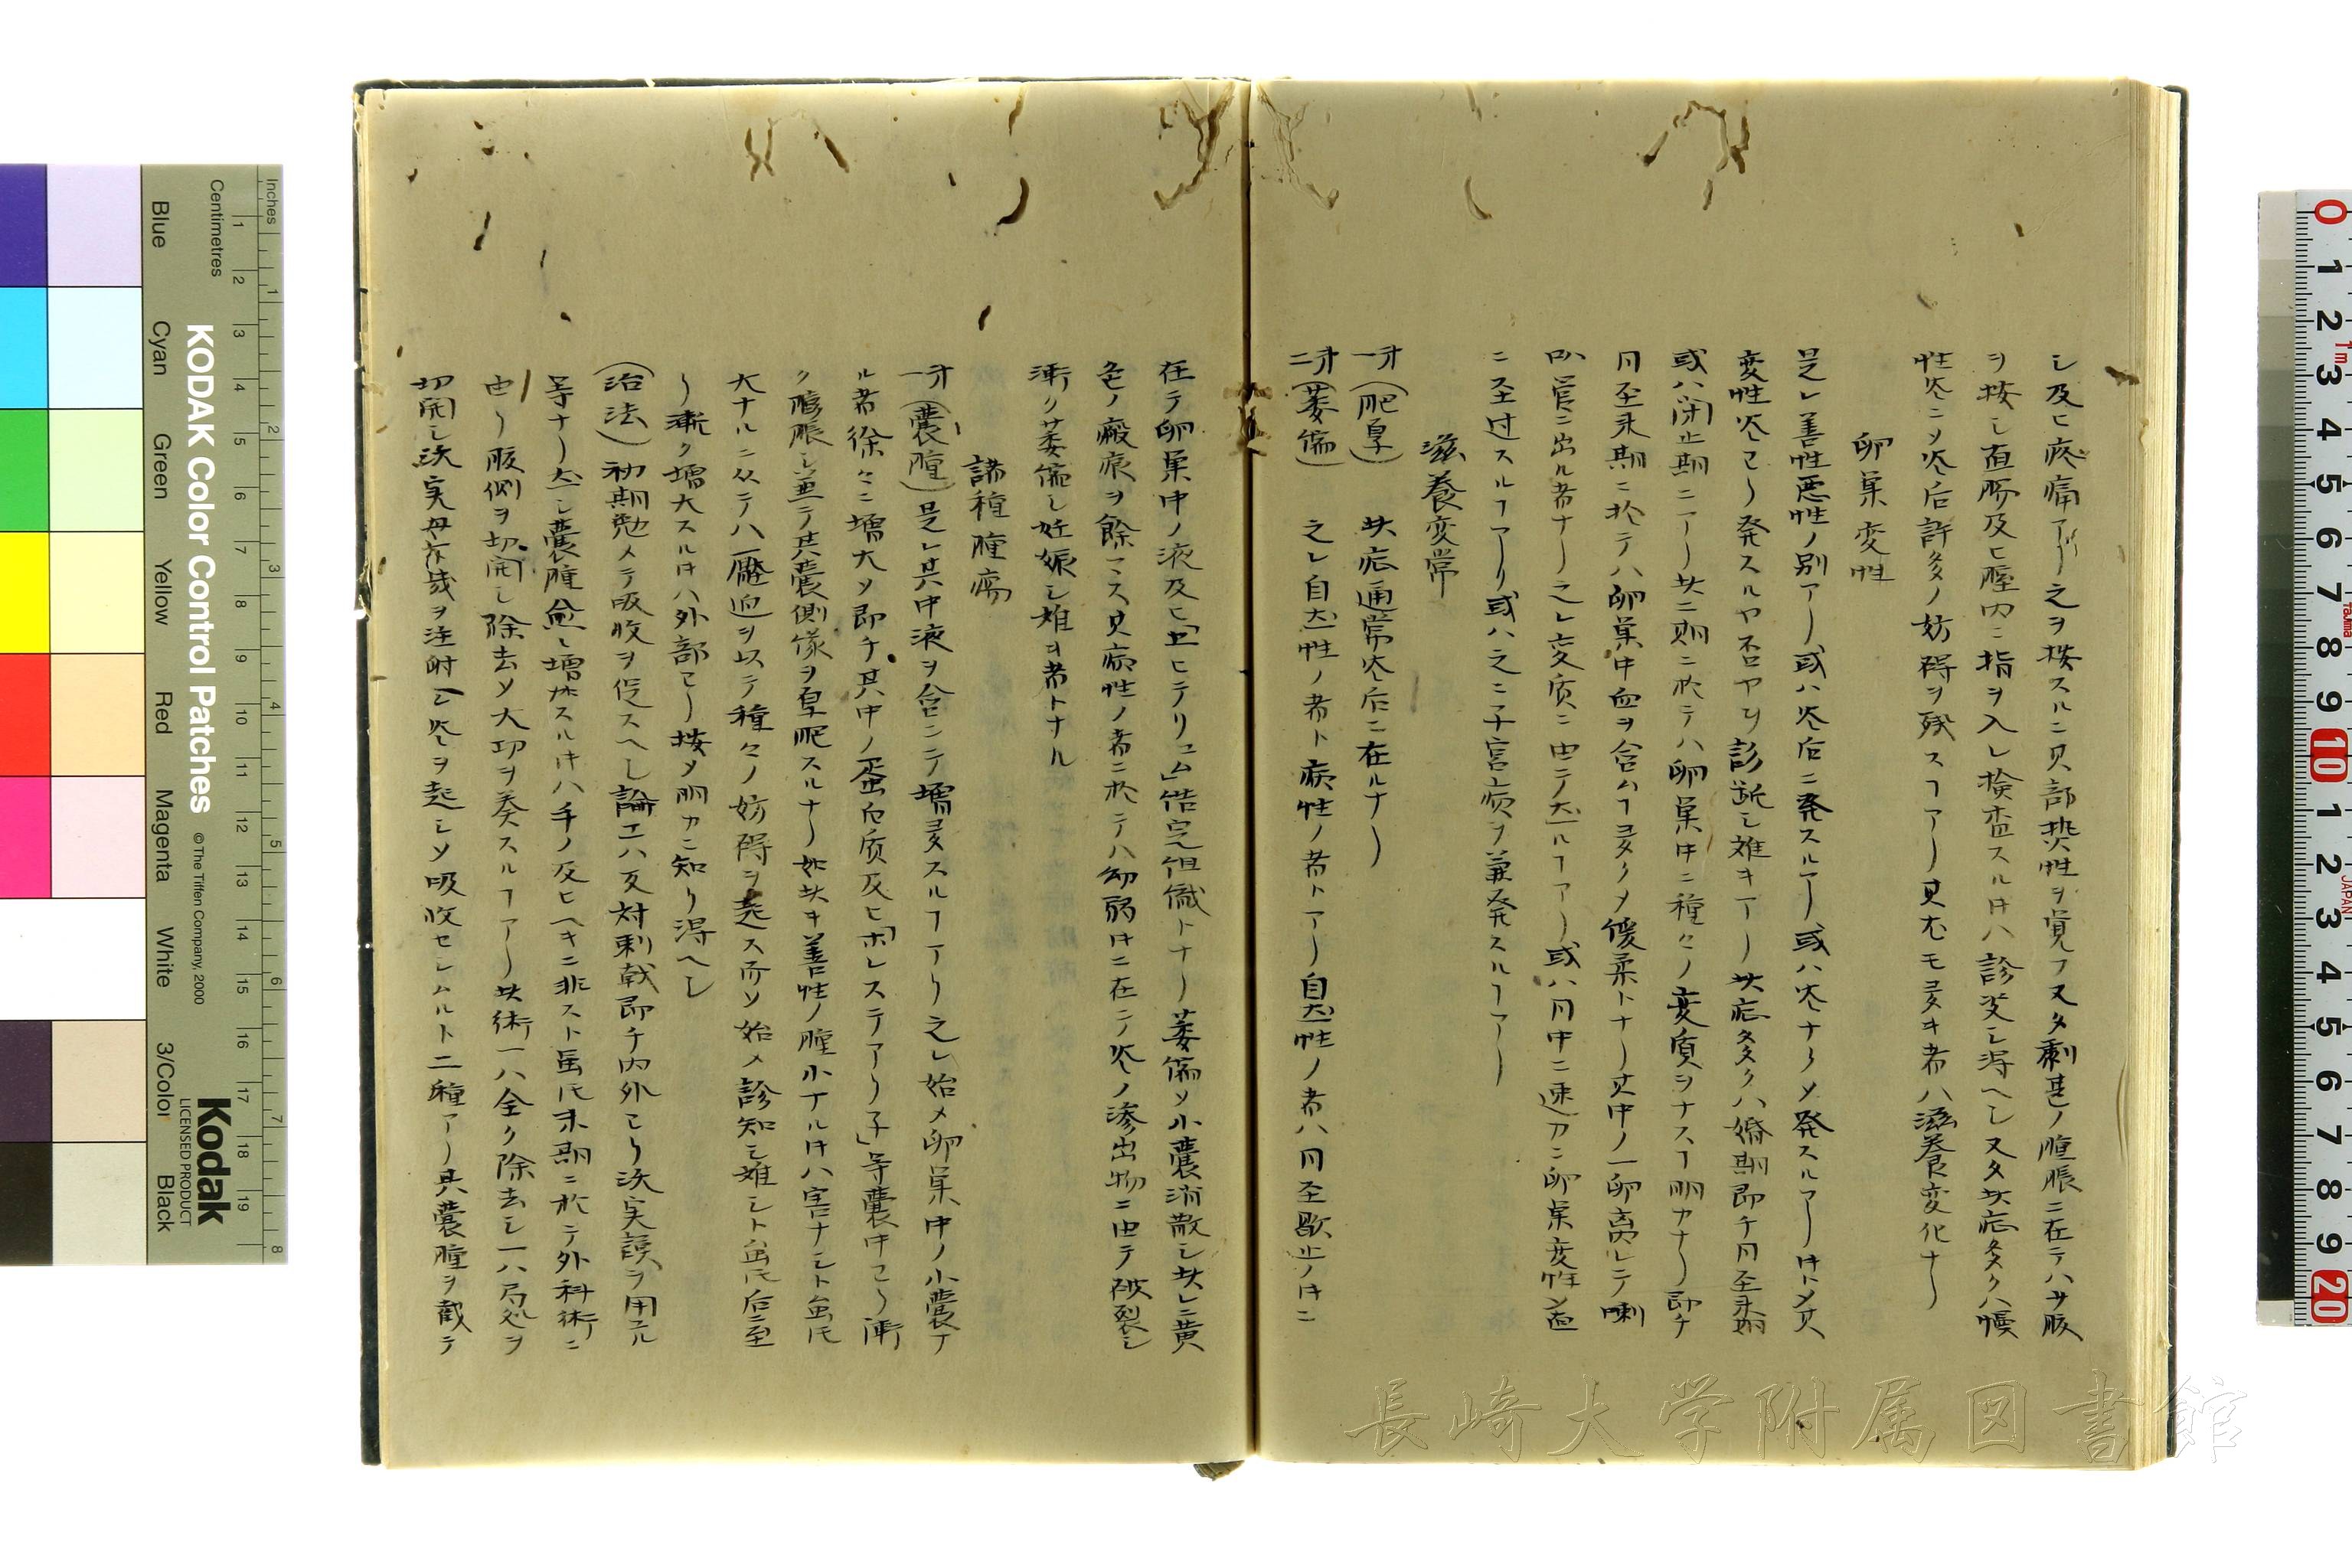 シ及ヒ疼痛アリ之ヲ按スルニ其部焮性ヲ覚フ又タ劇甚ノ腫脹ニ在テハサ腹
ヲ按シ直腸及ヒ腟内ニ指ヲ入レ検査スル片ハ診定シ得ヘシ又タ此症多クハ慢
性炎ニメ炎后許多ノ妨碍ヲ残スヿアリ其尤モ多キ者ハ滋養変化ナリ
卵巣変性
是レ善性悪性ノ別アリ或ハ炎后ニ発スルアリ或ハ炎ナクメ発スルアリ片トメ其
変性炎ヨリ発スルヤ否ヤヲ診断シ難キアリ此症多クハ婚期即チ月圣来期
或ハ閉止期ニアリ此二期ニ於テハ卵巣中ニ種々ノ変質ヲナスヿ明カナリ即チ
月圣来期ニ於テハ卵巣中血ヲ含ムヿ多クメ優柔トナリ其中ノ一卵离レテ喇
叭管ニ出ル者ナリ之レ変质ニ由テ然ルヿアリ或ハ月中ニ速カニ卵巣変性ノ
ニ至过スルヿアリ或ハ之ニ子宮病ヲ兼発スルヿアリ
滋養変常
才一(肥厚) 此症通常炎后ニ在ルナリ
才二(萎縮) 之レ自然性ノ者ト病性ノ者トアリ自然性ノ者ハ月圣歇止ノ片ニ
在テ卵巣中ノ液及ヒ「ヒテリユム」結完組織トナリ萎縮メ小嚢消散シ此レニ黄
色ノ瘢痕ヲ餘マス又病性ノ者ニ於テハ幼弱片ニ在テ炎ノ滲出物ニ由テ破裂シ
漸ク萎縮シ妊娠シ難キ者トナル
諸種腫瘍
才一(嚢腫)是レ其中液ヲ含ンテ増多スルヿアリ之レ始メ卵巣中ノ小嚢ナ
ル者徐々ニ増大メ即チ其中ノ蛋白质及ヒ「ホレステアリ子」等嚢中ヨリ漸
ク膨脹シ並テ其嚢側傍ヲ皐肥スルナリ如此キ善性ノ腫小ナル片ハ害ナシト虽氏
大ナルニ从テハ壓迫ヲ以テ種々ノ妨碍ヲ起ス而メ始メ診知シ難シト虽氏后ニ至
リ漸ク増大スル片ハ外部ヨリ按メ明カニ知リ得ヘシ
(治法)初期勉メテ吸收ヲ促スヘシ論エハ反対刺戟即チ内外ヨリ沃実謨ヲ用ユル
等ナリ然シ嚢腫愈レ増加スル片ハ手ノ及ヒヘキニ非スト虽氏末期ニ於テ外科術ニ
由リ腹側ヲ切開シ除去メ大功ヲ奏スルヿアリ此術一ハ全ク除去シ一ハ局処ヲ
切開シ沃実母丁幾ヲ注射シ炎ヲ起シメ吸收セシムルト二種アリ其嚢腫ヲ截テ
KODAK Color Control Patches
© The Tiffen Company, 2000
Kodak
LICENSED PRODUCT
Centimetres
Inches
Blue
Cyan
Green
Yellow
Red
Magenta
White
3/Color
Black
長崎大学附属図書館